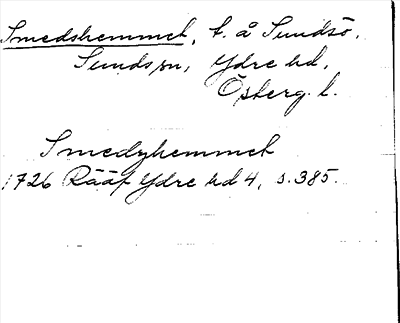 Smedshemmet, t. å Sundsö,
Sunds sn, Ydre hd,
Östergl.
Smedzhemmet
1726 Rääf Ydre hd 4, s. 385.